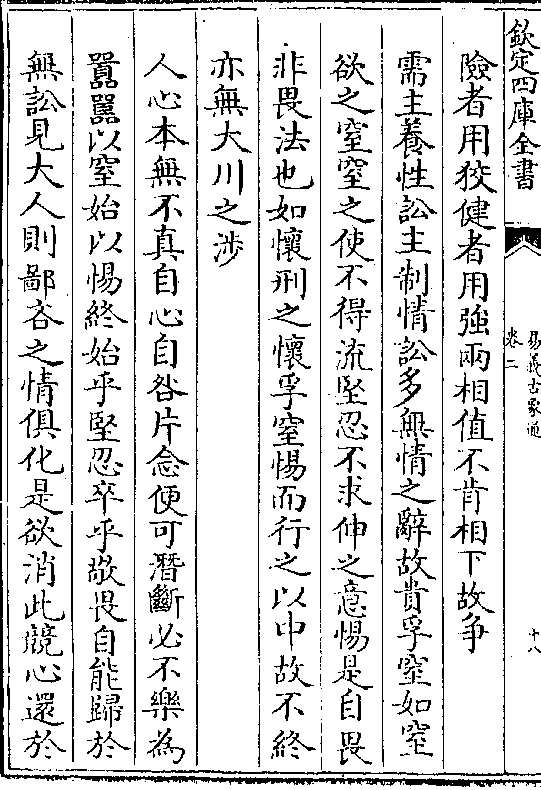 欽定四庫全書
易義古象通
卷二
十八
險者用狡健者用強兩相值不肯相下故争
需主養性訟主制情訟多無情之辭故貴孚窒如窒
欲之窒窒之使不得流堅忍不求伸之意惕是自畏
非畏法也如懷刑之懷孚窒惕而行之以中故不終
亦無大川之涉
人心本無不真自心自咎片念便可潛斷必不樂為
嚚嚚以窒始以惕終始乎堅忍卒乎敬畏自能歸於
無訟見大人則鄙吝之情俱化是欲消此競心還於